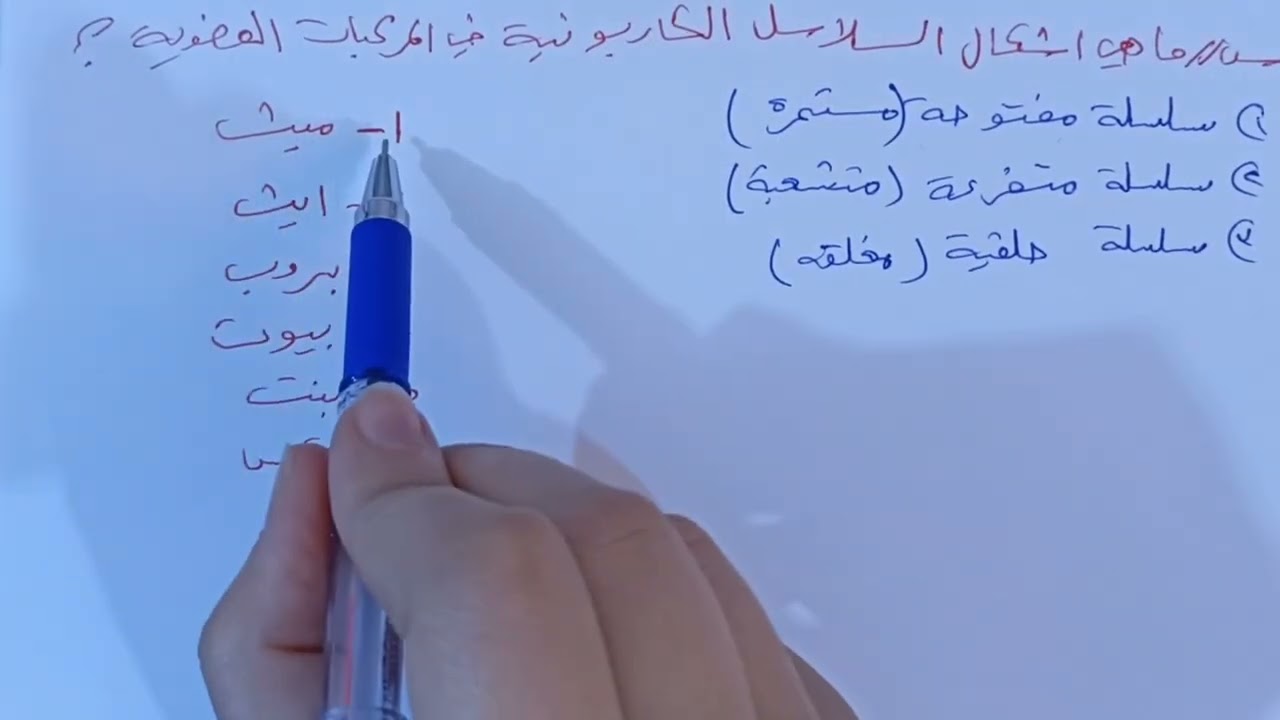 س// ما هي اشكال السلاسل الكاربونية في المركبات العضوية ؟
١) سلسلة مفتوحة (مستمرة)
٢) سلسلة متفرعة (متشعبة)
٣) سلسلة حلقية (مغلقه)
١- ميث
ايث
بروب
بيوت
بنت